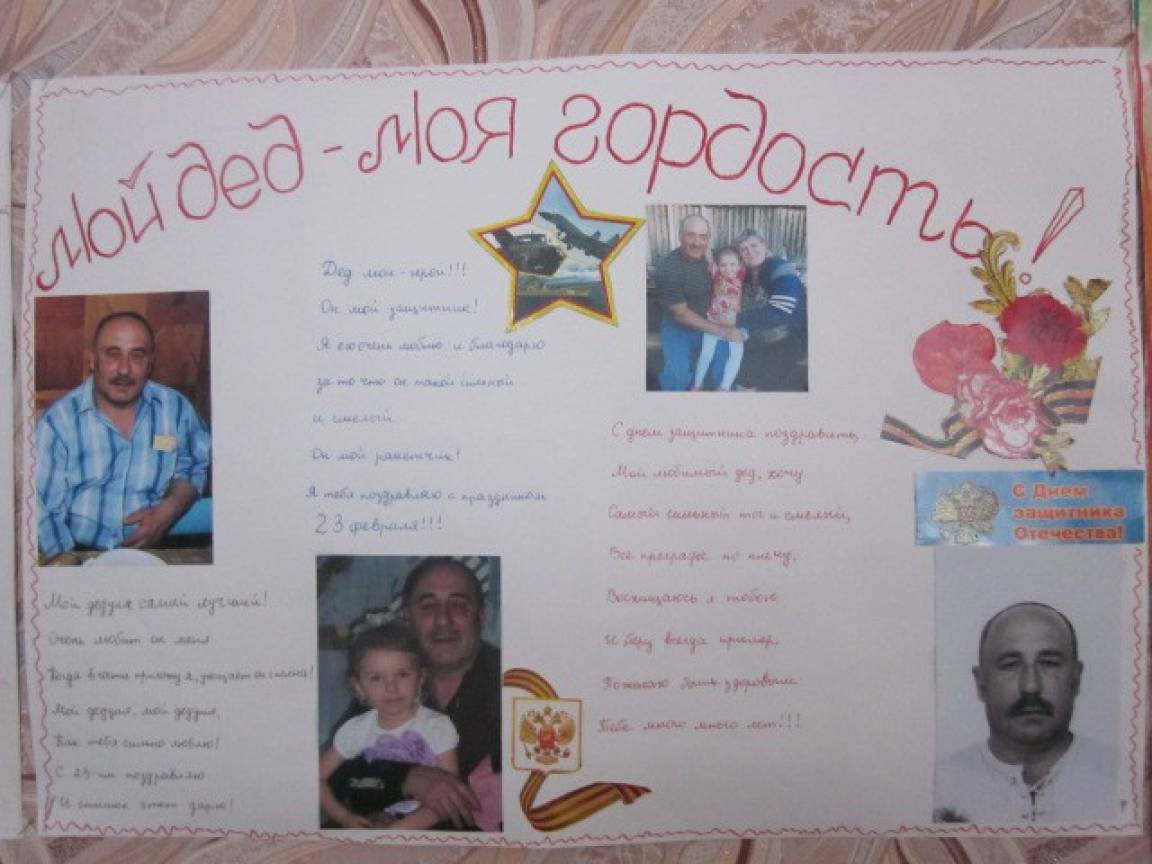 мой дед - моя гордость!
Дед мой - герой!!!
Он мой защитник!
Я его очень люблю и благодарю
за то что он такой сильный
и смелый
Он мой ракетчик!
Я тебя поздравляю с праздником
23 февраля!!!
С днем защитника поздравить,
Мой любимый дед, хочу
Самый сильный ты и смелый,
Все преграды по плечу.
Восхищаюсь я тобою
И беру всегда пример,
Пожелаю быть здоровым
Тебе много много лет!!!
С Днем
защитника
Отечества!
Мой дедуля самый лучший!
Очень любит он меня
Когда в гости прихожу я, угощает он
Мой дедуля, мой дедуля,
Как тебя сильно люблю!
С 23-им поздравляю
И стишок этот дарю!